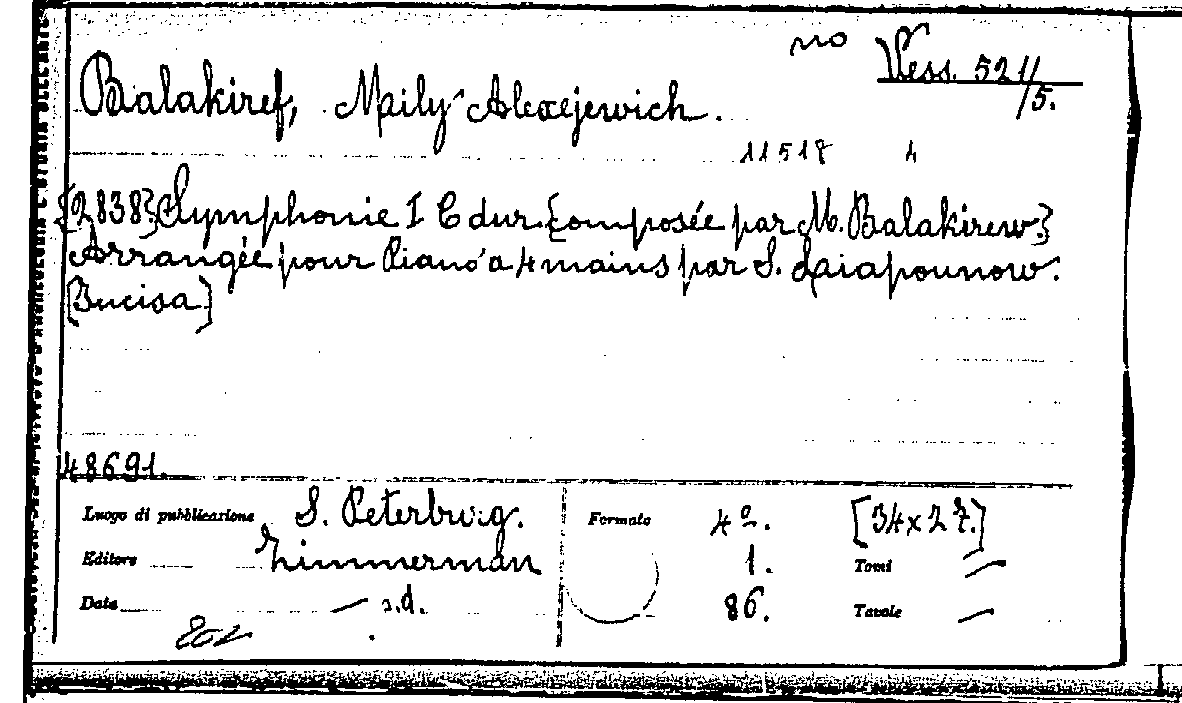 no Vess. 521/
/5.
Balakiref, Mily Alexejewich.
11518 4
{2838} Symphonie I C dur. {composée par M. Balakirew.}
Arrangée pour Piano à 4 mains par S. Liapounow.
[Incisa]
48691.
Luogo di pubblicazione S. Peterburg. Formato 4º. [34x27.]
Editore Zimmerman 1. Tomi —
Data — s.d. 86. Tavole —